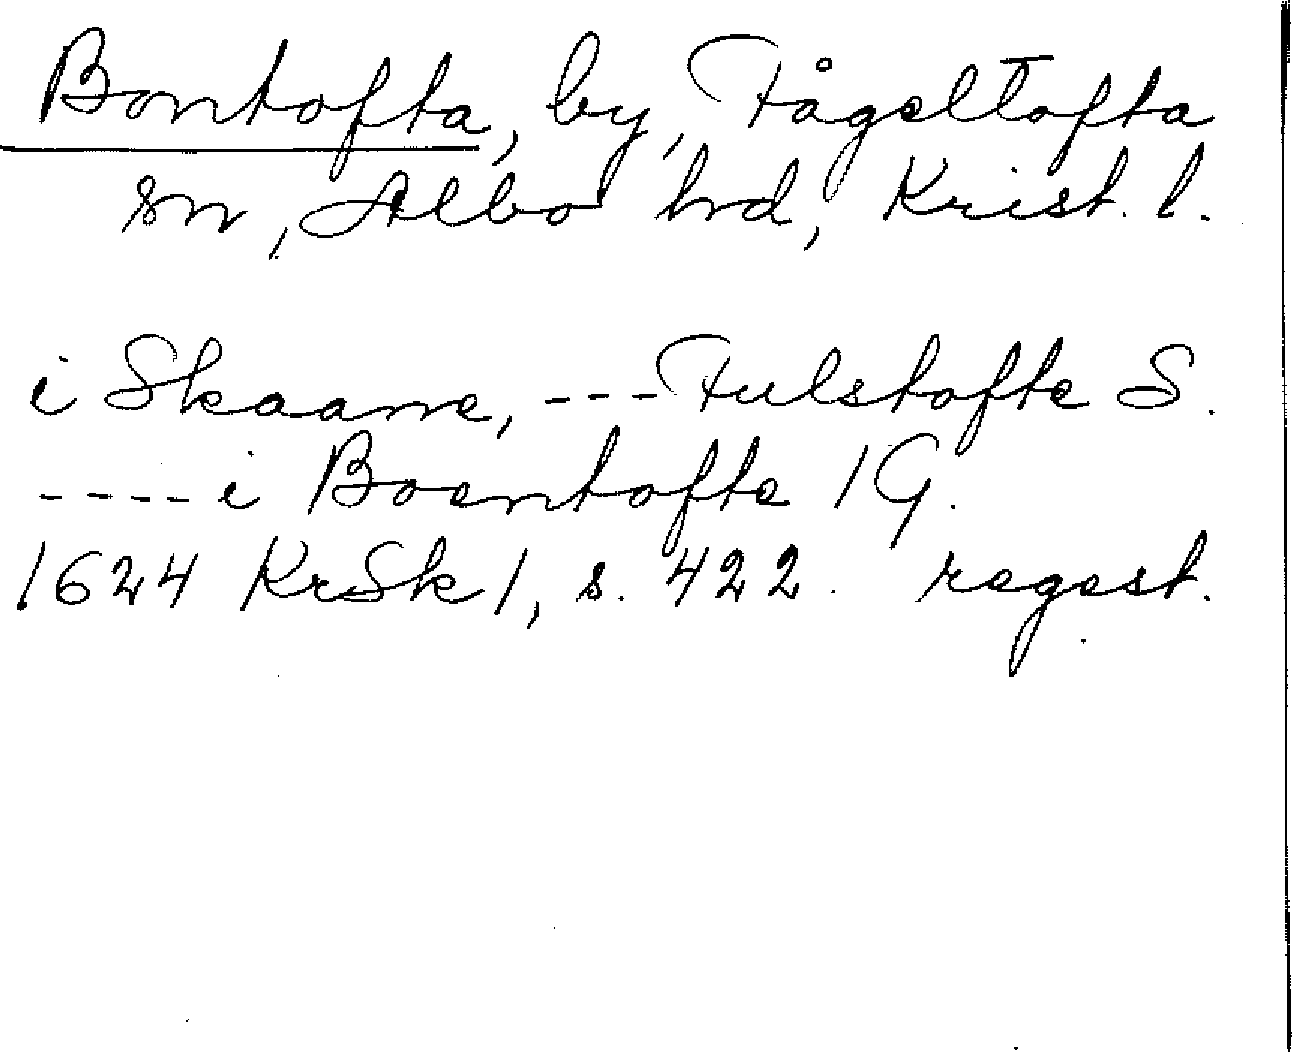 Bontofta, by, Fågeltofta
sn, Albo hrd, Krist. l.
i Skaane, --- Fulstofte S.
---- i Boentofte 1 G.
1624 KrSk 1, s. 422. regest.